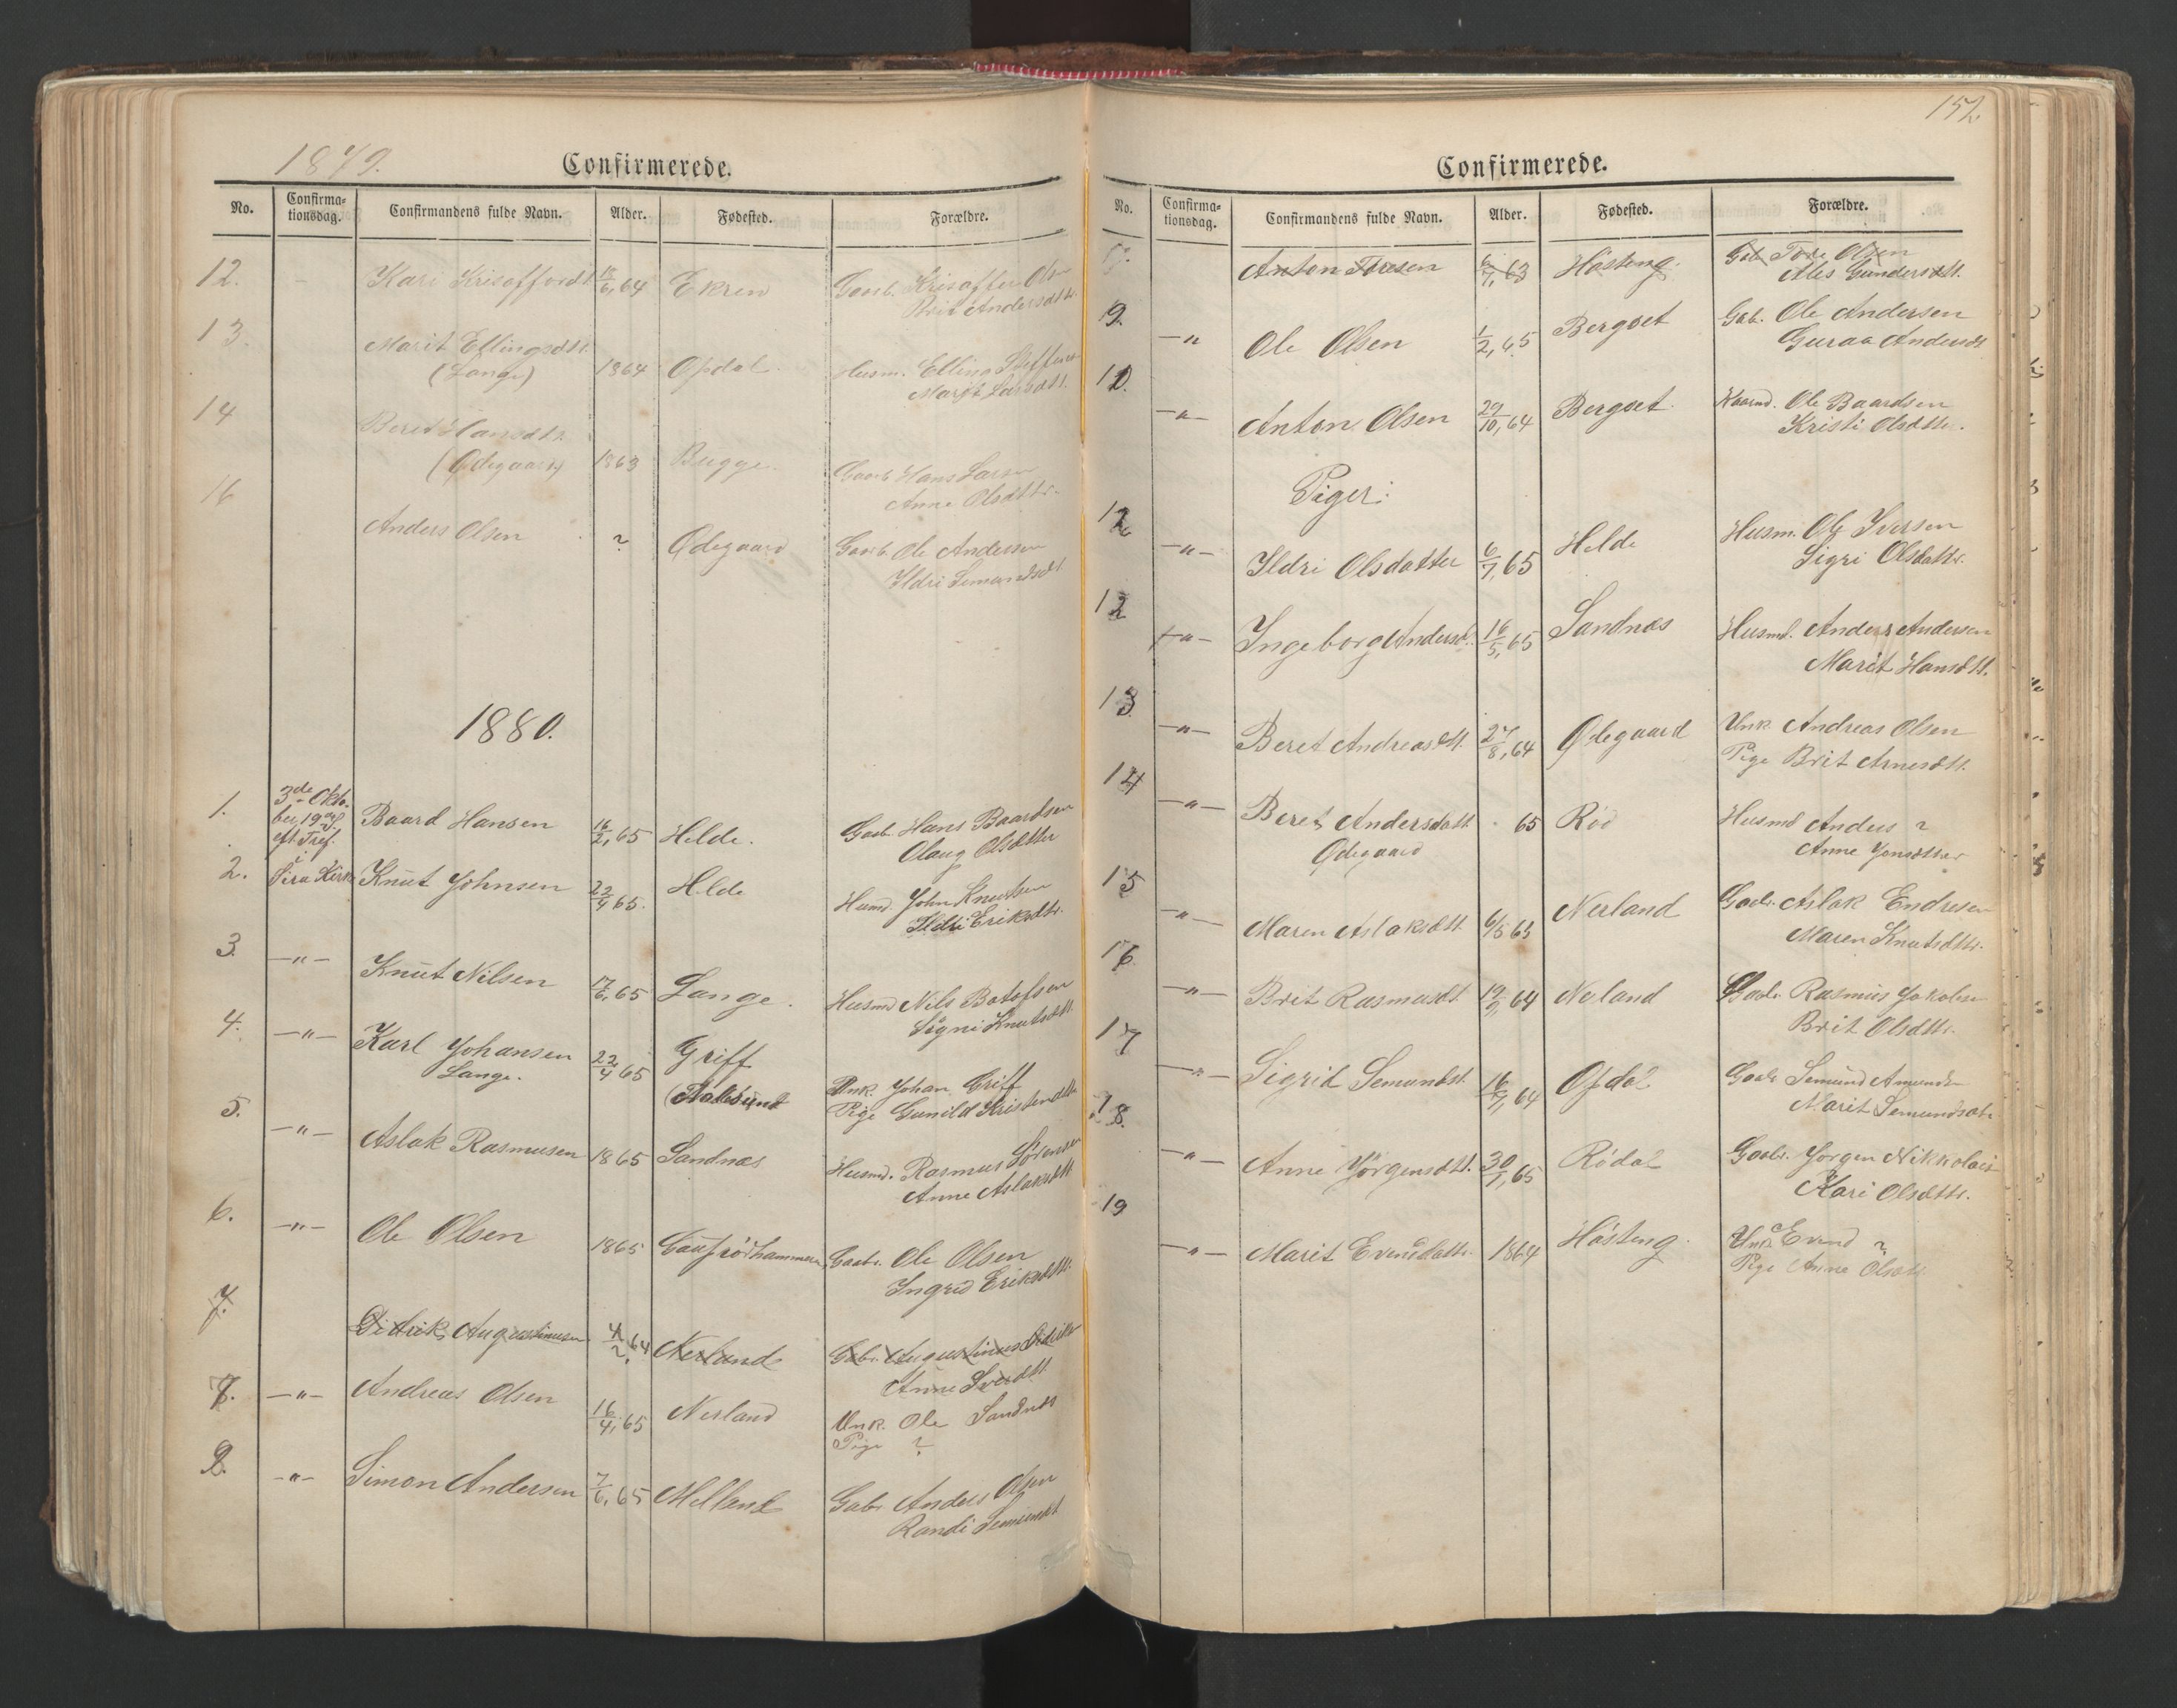 1879.
Confirmerede.
No. Confirma-tionsdag. Confirmandens fulde Navn. Alder. Fødested. Forældre.
12. Kari Krisoffersdt 64 Ekren Gaarb. Krisoffer Olsen
Brit Andersdttr.
13. Marit Ellingsdtt.
(Lange) 1864 Opdal. Husm. Elling Steffens
Marit Larsdtt.
14 Beret Hansdtt.
(Ødegaard) 1863 Bugge. Gaarb Hans Larsen
Anne Olsdttr.
16 Anders Olsen ? Ødegaard Gaarb. Ole Andersen
Ildri Semundsdt.
1880.
1. 3de Okto-
ber, 19de S.
eft. Tref. Baard Hansen 16/2, 65 Helde. Gaarb. Hans Baardsen
Olaug Olsdtter
2. i Sira Kirke Knut Johnsen 22/4 65. Helde Husmd. John Knutsen
Ildri Eriksdtr.
3. —"— Knut Nilsen 17/6, 65 Lange. Husmd Nils Botofsen
Signi Knutsdtt.
4. —"— Karl Johansen
Lange. 22/4 65 Griff
(Aalesund Unk. Johan Griff
Pige Gunild Kristensdtt
5. —"— Aslak Rasmusen 1865 Sandnæs Husmd. Rasmus Sørensen
Anne Aslaksdtt
6. —"— Ole Olsen 1865 Gaarb. Ole Olsen
Ingrid Eriksdttr.
7. Didrik Augustinusen 64 Nerland Gabr. Augustinus Didriks
Anne Iversdtt.
8. —"— Andreas Olsen 16/4, 65 Nerland Unk. Ole Sandnæs
Pige ?
9. —"— Simon Andersen 7/6, 65 Melland Gabr. Anders Olsen
Randi Semundsdt
152.
Confirmerede.
No. Confirma-tionsdag. Confirmandens fulde Navn. Alder. Fødested. Forældre.
Anton Toresen 6/7, 63 Høsteng. Gab. Tore Olsen
Ales Gundersdtt.
9. —"— Ole Olsen 1/2, 65 Bergset Gab. Ole Andersen
Guraa Andersdt
10. —"— Anton Olsen 29/10, 64 Bergset. Kaarmd. Ole Baardsen
Kristi Olsdttr.
Piger:
12 —"— Ildri Olsdatter 6/7, 65 Helde Husm. Ole Iversen
Sigri Olsdattr.
12 —"— Ingeborg Andersd. 16/5, 65 Sandnæs Husmd. Anders Andersen
Marit Hansdtt.
13 —"— Beret Andreasdtt. 27/8, 64 Ødegaard Unk Andreas Olsen
Pige Brit Arnesdtt.
14 —"— Beret Andersdatt
Ødegaard 65 Rød Husmd Anders ?
Anne Jonsdtter
15 —"— Maren Aslaksdtt. 65 Nerland Gaabr. Aslak Endresen
Maren Knutsdttr.
16 —"— Brit Rasmusdt. 19/9, 64 Nerland Gaabr. Rasmus Jakobsen
Brit Olsdttr.
17 —"— Sigrid Semundsdt. 16/9, 64 Opdal Gaabr Semund Amunds
Marit Semundsdt.
18. —"— Anne Jörgensdtt. 30/7, 65 Rødal Gaabr. Jörgen Nikkolais
Kari Olsdttr.
19 —"— Marit Evensdattr. 1864 Høsteng. Unk. Evend ?
Pige Anne Olsdtr.